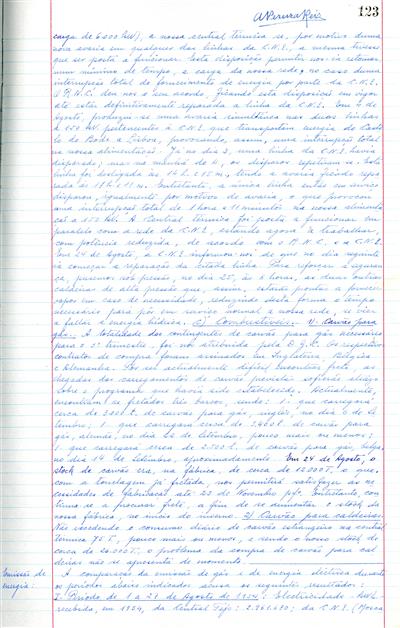 A Pereira Reis
123
carga de 6000 kW), a nossa central térmica se, por motivo duma
nova avaria em qualquer das linhas da C.N.E., a mesma tivesse
que ser posta a funcionar. Esta disposição permitir-nos-ia retomar
num mínimo de tempo, a carga da nossa rede, no caso duma
interrupção total do fornecimento de energia por parte da C.N.E.
O R.N.C. deu-nos o seu acordo, ficando esta disposição em vigor
até estar definitivamente reparada a linha da C.N.E. Em 4 de
Agosto, produziu-se uma avaria simultânea nas duas linhas
a 150 kV. pertencentes à C.N.E. que transportam energia do Caste
lo do Bode a Lisboa, provocando, assim, uma interrupção total
na nossa alimentação. no dia 3, uma linha da C.N.E. havia
disparado; mas na manhã de 4, os disparos repetiram-se. Esta
linha foi desligada às tendo a avaria ficado repa
rada às Entretanto, a única linha então em serviço
disparou, igualmente por motivo de avaria, o que provocou
uma interrupção total de 1 hora e 11 minutos na nossa alimenta
ção a 150 kV. A Central térmica foi posta a funcionar em
paralelo com a rede da C.N.E., estando agora a trabalhar,
com potência reduzida, de acordo com o R.N.C. e a C.N.E.
Em 24 de Agosto, a C.N.E. informou-nos de que no dia seguinte
ia começar a reparação da citada linha. Para reforçar a seguran
ça, pusemos sob pressão, no dia 25, às 6 horas, as duas outras
caldeiras de alta pressão que, assim, estarão prontas a fornecer
vapor em caso de necessidade, reduzindo desta forma o tempo
necessário para pôr em serviço normal a nossa rede, se vier
a faltar a energia hídrica. c) Combustíveis: 1) Carvão para
gás: A totalidade dos contingentes de carvão para gás necessário
para o 3º trimestre, foi-nos atribuída pela D.G.C. Os respectivos
contratos de compra foram assinados em Inglaterra, Bélgica
e Alemanha. Por ser actualmente difícil encontrar frete, as
chegadas dos carregamentos de carvão previstas sofreram atraso
sobre o programa que havia sido estabelecido. Actualmente,
encontram-se fretados três barcos, sendo: 1: que carregará
cerca de 3000 t. de carvão para gás, inglês, no dia 6 de Se
tembro; 1: que carregará cerca de 3.400 t. de carvão para
gás, alemão, no dia 22 de Setembro, pouco mais ou menos;
1: que carregará cerca de 1.700 t. de carvão para gás belga,
no dia 14 de Setembro, aproximadamente. Em 24 de Agosto, o
stock de carvão era, na fábrica, de cerca de 12000 T, o que,
com a tonelagem já fretada, nos permitirá satisfazer as ne
cessidades de fabricação até 23 de Novembro pf. Entretanto, con
tinua-se a procurar frete, a fim de se aumentar o stock da
nossa fábrica, no início do inverno. 2) Carvão para caldeiras:
Não excedendo o consumo diário de carvão estrangeiro na central
térmica 75 T., pouco mais ou menos, e sendo o nosso stock de
cerca de 20.000 T. o problema da compra de carvão para cal
deiras não se apresenta de momento.
Emissão de energia:
A comparação da emissão de gás e de energia eléctrica durante
os períodos abaixo indicados acusa os seguintes resultados:
I- Período de 1 a 21 de Agosto de 1954: Electricidade - kWh
recebida, em 1954, da Central Tejo: 2.961.690; da C.N.E. (Mosca